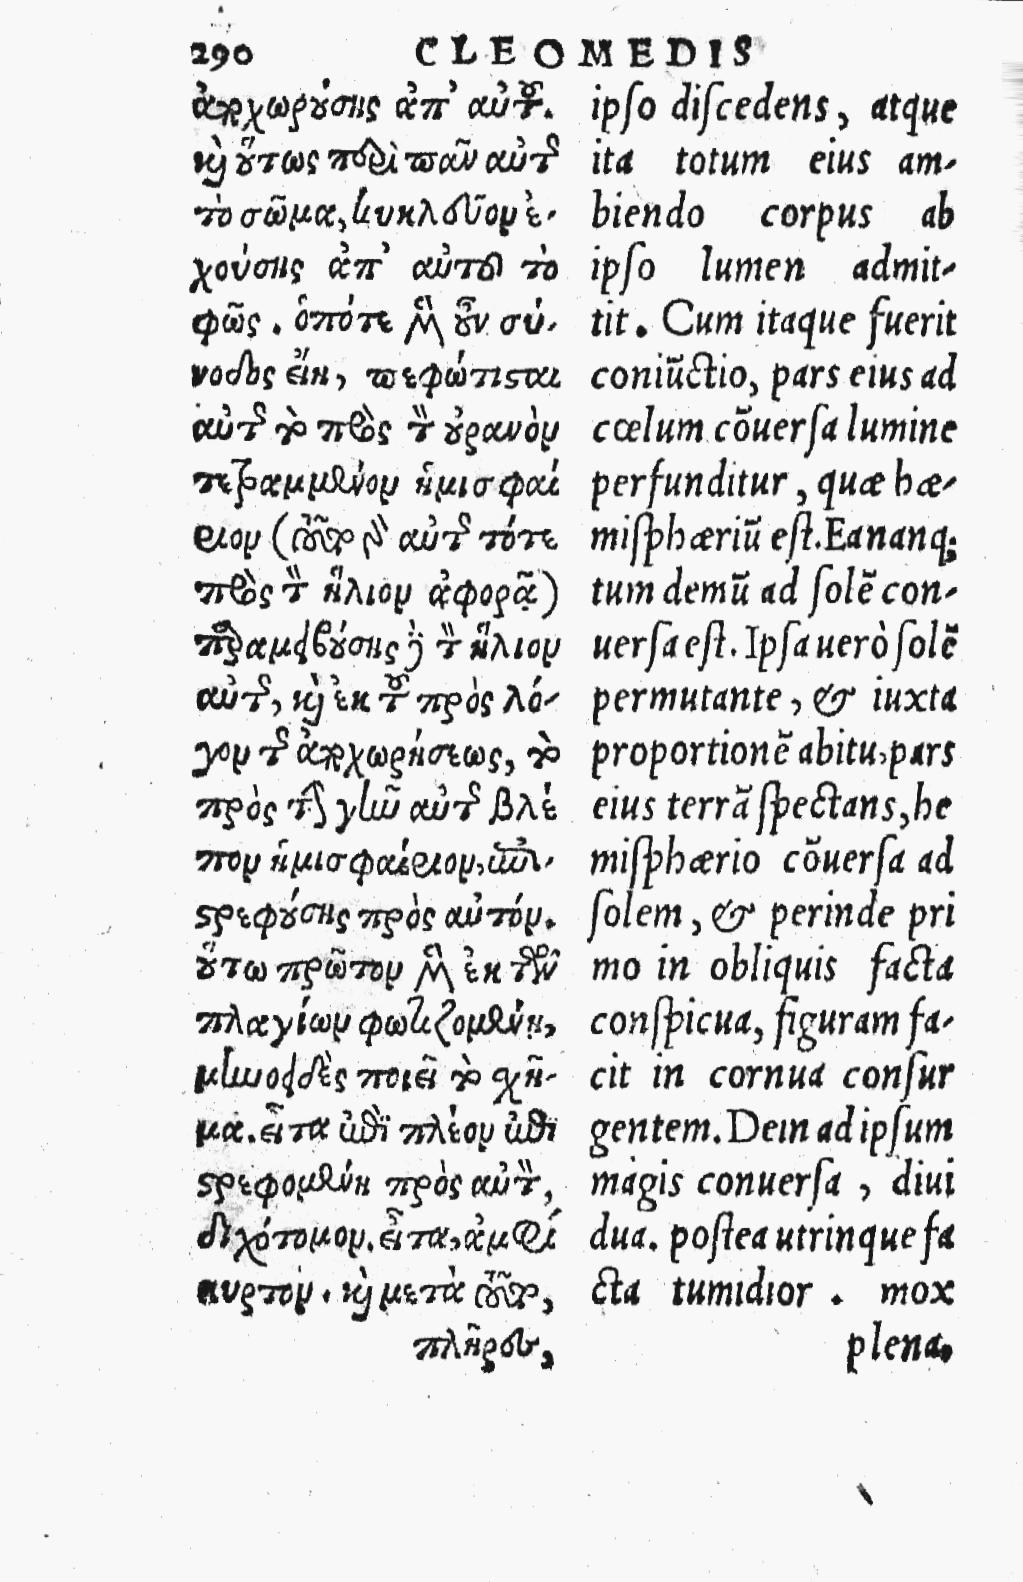 290 CLEOMEDIS
ἀποχωρούσης ἀπ' αὐτοῦ.
καὶ οὕτως περὶ πᾶν αὐτῆς
τὸ σῶμα, κυκλεῦον ἐ-
χούσης ἀπ' αὐτοῦ τὸ
φῶς. ὁπότε μὲν οὖν σύ-
νοδος εἴη, πεφώτισται
αὐτῆς τὸ πρὸς τὸν οὐρανὸν
τετραμμένον ἡμισφαί
ριον (τοῦτο γὰρ αὐτῆς τότε
πρὸς τὸν ἥλιον ἀφορᾷ)
παραμειβούσης δὲ τὸν ἥλιον
αὐτῆς, καὶ ἐκ τοῦ πρὸς λό-
γον τῆς ἀποχωρήσεως, τὸ
πρὸς τὴν γῆν αὐτῆς βλέ
πον ἡμισφαίριον, ἐπι-
στρεφούσης πρὸς αὐτόν.
οὕτω πρῶτον μὲν ἐκ τῶν
πλαγίων φωτιζομένη,
μηνοειδὲς ποιεῖ τὸ σχῆ-
μα. εἶτα ἐπὶ πλέον ἐπι
στρεφομένη πρὸς αὐτὸν,
διχότομον. εἶτα, ἀμφί
κυρτον. καὶ μετὰ τοῦτο,
πλήρου,
ipso discedens, atque
ita totum eius am-
biendo corpus ab
ipso lumen admit-
tit. Cum itaque fuerit
coniūctio, pars eius ad
cœlum cōuersa lumine
perfunditur, quæ hæ-
misphæriū est. Ea nanq;
tum demū ad solē con-
uersa est. Ipsa uerò solē
permutante, & iuxta
proportionē abitu, pars
eius terrā spectans, he
misphærio cōuersa ad
solem, & perinde pri
mo in obliquis facta
conspicua, figuram fa-
cit in cornua consur
gentem. Dein ad ipsum
magis conuersa, diui
dua. postea utrinque fa
cta tumidior. mox
plena,